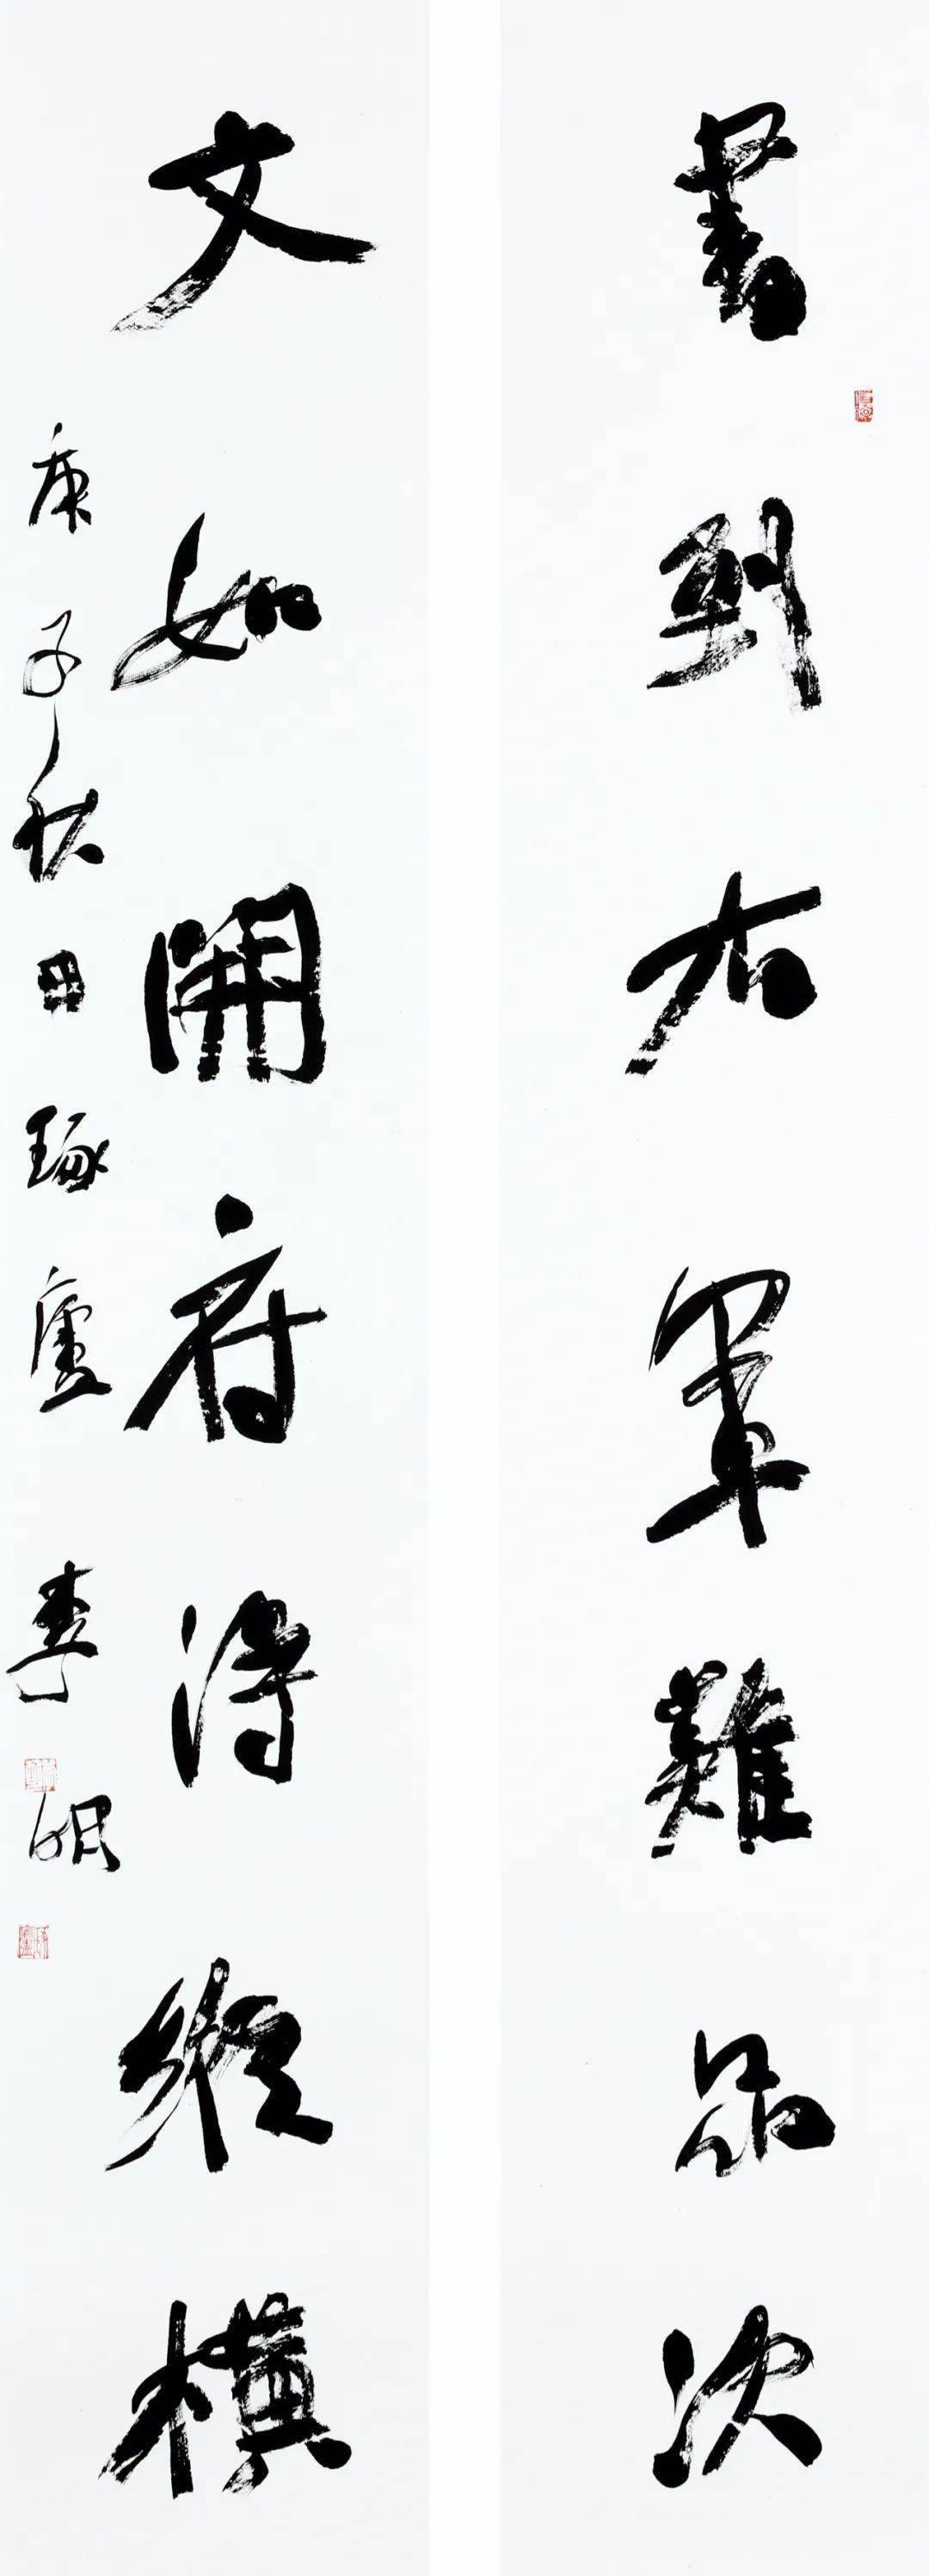 書到右軍難品次
文如開府得縱橫
庚子秋日琢廬李明